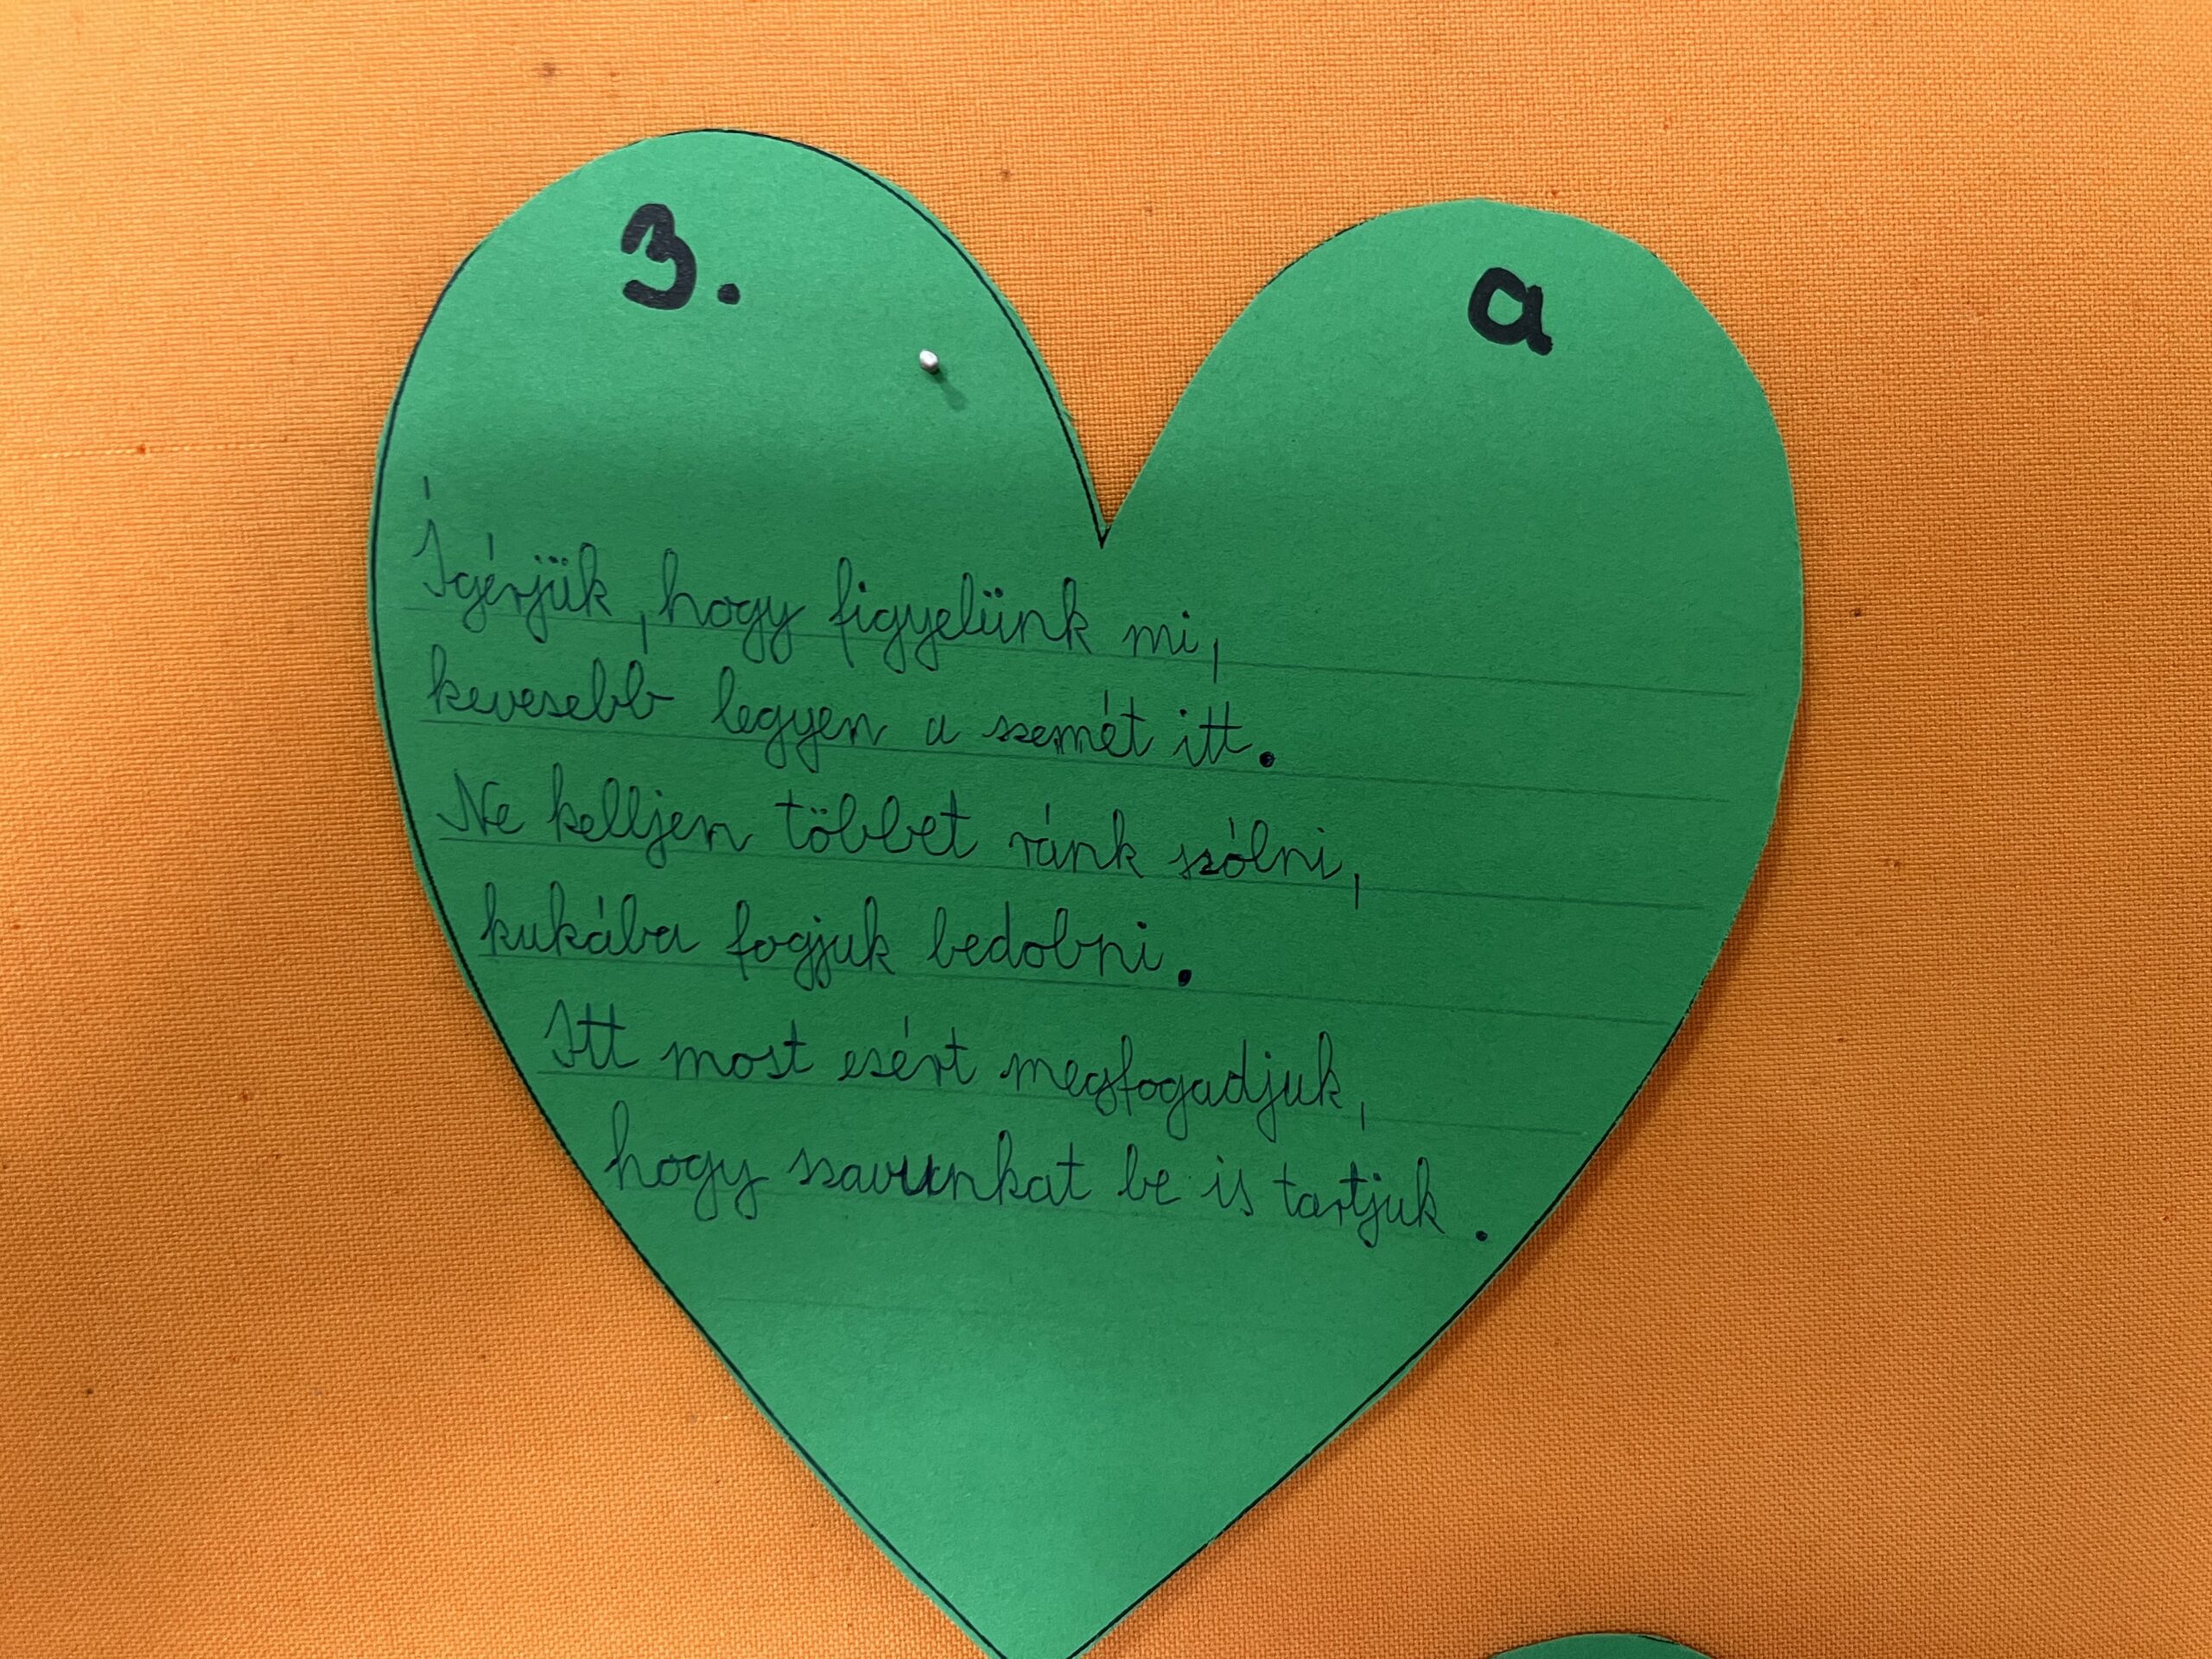 3. a
Ígérjük, hogy figyelünk mi,
kevesebb legyen a szemét itt.
Ne kelljen többet ránk szólni,
kukába fogjuk bedobni.
Itt most ezért megfogadjuk,
hogy szavunkat be is tartjuk.